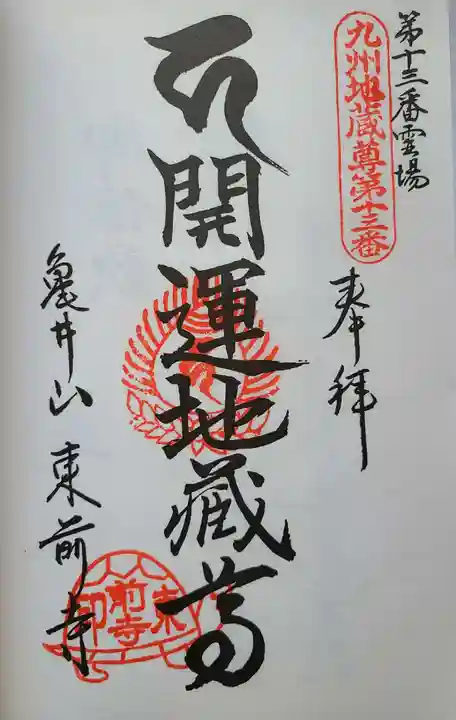 第十三番霊場
九州地蔵尊第十三番
奉拝
開運地蔵尊
亀井山東前寺
東前寺印